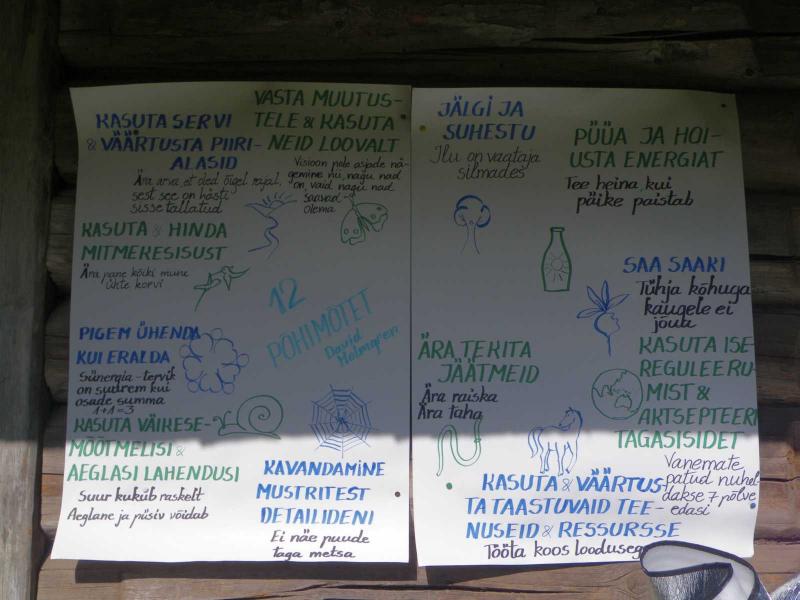 VASTA MUUTUS-
TELE & KASUTA
NEID LOOVALT
Visioon pole asjade nä-
gemine nii, nagu nad
on, vaid nagu nad
saavad
olema
KASUTA SERVI
& VÄÄRTUSTA PIIRI-
ALASID
Ära arva, et oled õigel rajal,
sest see on hästi
sisse tallatud
KASUTA & HINDA
MITMEKESISUST
Ära pane kõiki mune
ühte korvi
12
PÕHIMÕTET
David
Holmgren
PIGEM ÜHENDA
KUI ERALDA
Sünergia - tervik
on suurem kui
osade summa
1+1=3
KASUTA VÄIKESE-
MÕÕTMELISI &
AEGLASI LAHENDUSI
Suur kukub raskelt
Aeglane ja püsiv võidab
KAVANDAMINE
MUSTRITEST
DETAILIDENI
Ei näe puude
taga metsa
JÄLGI JA
SUHESTU
Ilu on vaataja
silmades
PÜÜA JA HOI-
USTA ENERGIAT
Tee heina, kui
päike paistab
SAA SAAKI
Tühja kõhuga
kaugele ei
jõua
ÄRA TEKITA
JÄÄTMEID
Ära raiska
Ära taha
KASUTA ISE-
REGULEERU-
MIST &
AKTSEPTEERI
TAGASISIDET
Vanemate
patud nuhel-
dakse 7 põlve
edasi
KASUTA & VÄÄRTUS-
TA TAASTUVAID TEE-
NUSEID & RESSURSSE
Tööta koos loodusega